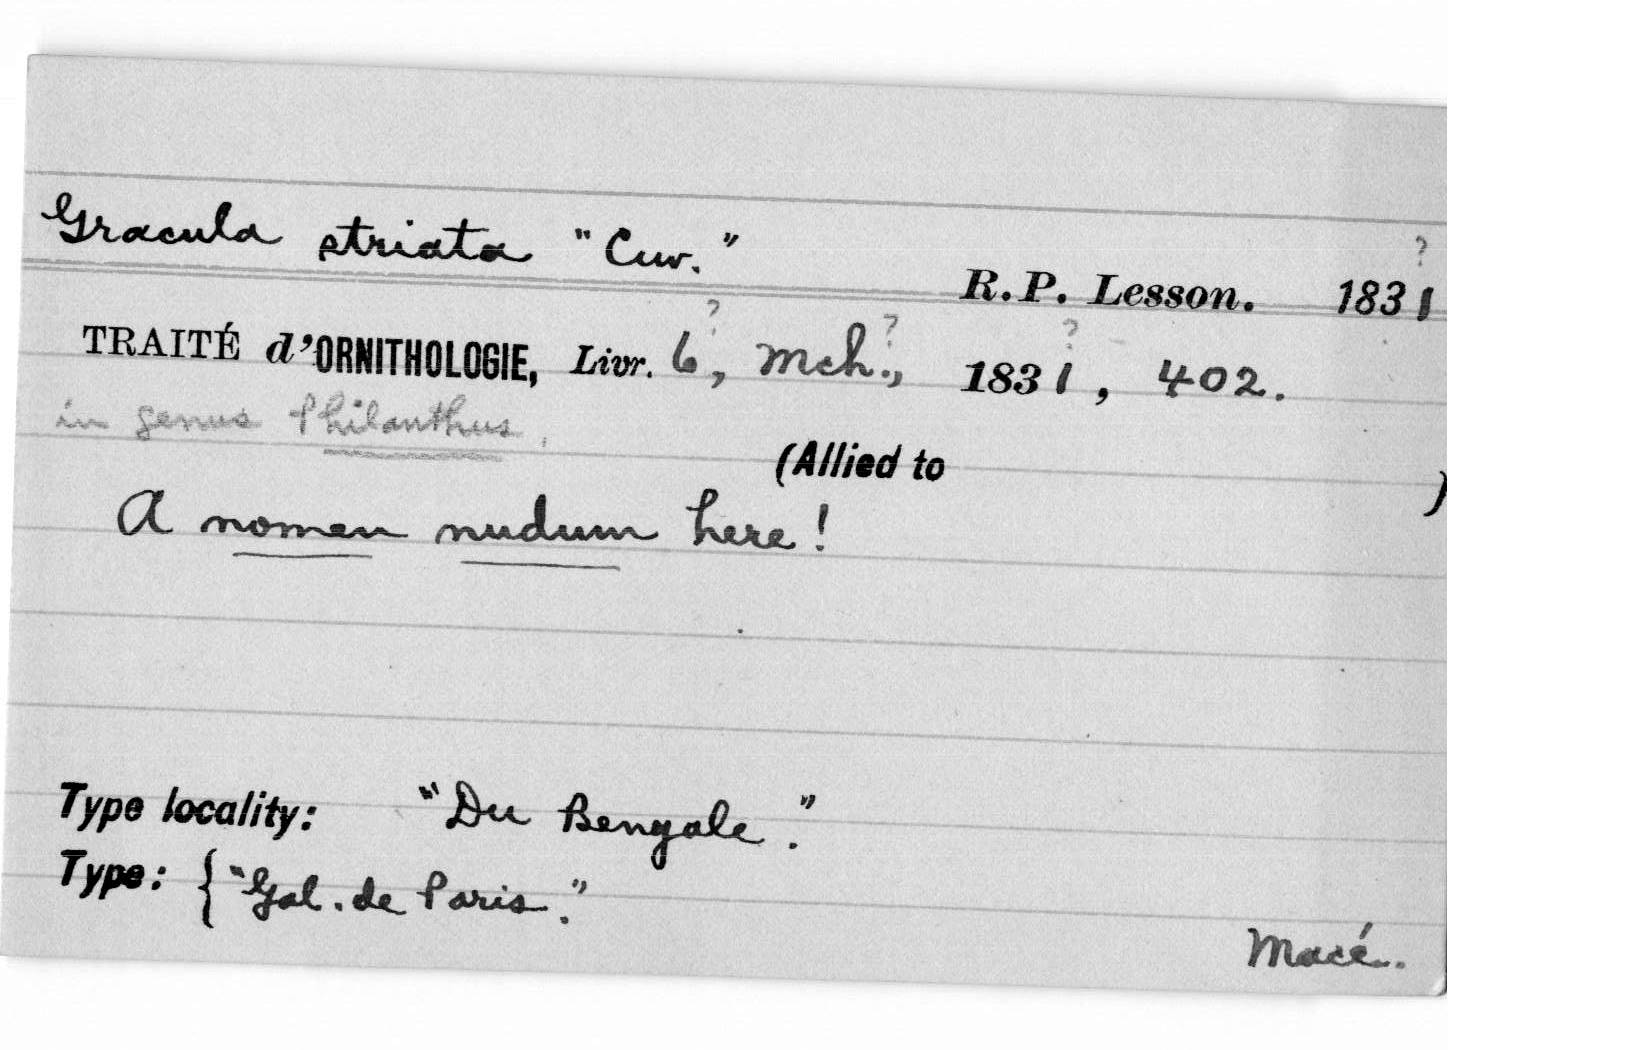 Gracula striata "Cuv."
R.P. Lesson. 1831?
TRAITÉ d'ORNITHOLOGIE, Livr. 6?, Mch.?, 1831?, 402.
in genus Philanthus.
(Allied to )
A nomen nudum here!
Type locality: "Du Bengale."
Type: { "Gal. de Paris."
Macé.